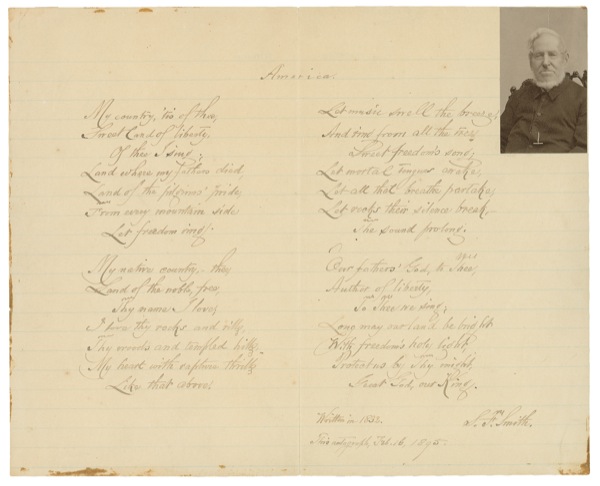 America.
My country, 'tis of thee,
Sweet land of liberty,
Of thee I sing;
Land where my fathers died,
Land of the pilgrims' pride,
From every mountain side
Let freedom ring!
My native country, thee,
Land of the noble, free,
Thy name I love;
I love thy rocks and rills,
Thy woods and templed hills;
My heart with rapture thrills
Like that above.
Let music swell the breeze,
And ring from all the trees
Sweet freedom's song;
Let mortal tongues awake,
Let all that breathe partake,
Let rocks their silence break,
The sound prolong.
Our fathers' God, to Thee,
Author of liberty,
To Thee we sing;
Long may our land be bright
With freedom's holy light;
Protect us by Thy might,
Great God, our King.
Written in 1832.
S. F. Smith.
This autograph, Feb. 16, 1895.